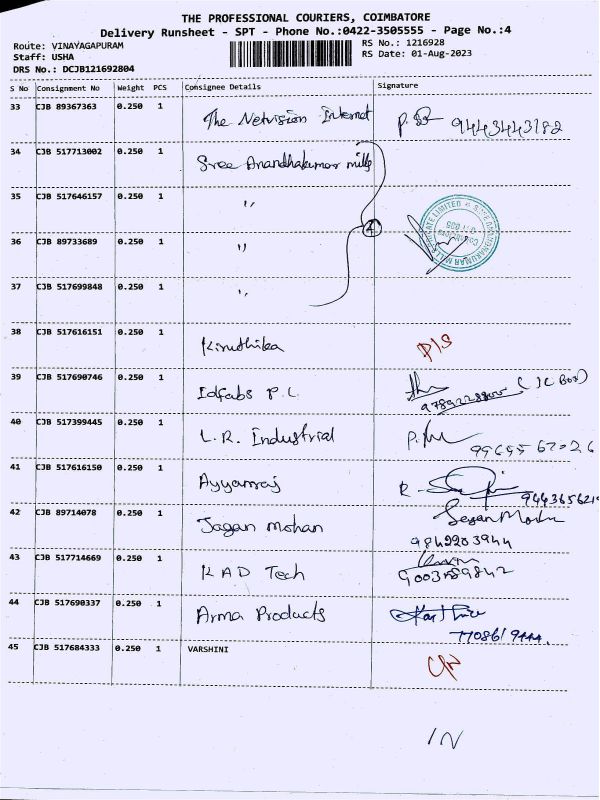 THE PROFESSIONAL COURIERS, COIMBATORE
Delivery Runsheet - SPT - Phone No.:0422-3505555 - Page No.:4
Route: VINAYAGAPURAM RS No.: 1216928
Staff: USHA RS Date: 01-Aug-2023
DRS No.: DCJB121692804
S No Consignment No Weight PCS Consignee Details Signature
33 CJB 89367363 0.250 1 The Netvision Internet 9443443182
34 CJB 517713002 0.250 1 Sree Anandhakumar mills
35 CJB 517646157 0.250 1 "
36 CJB 89733689 0.250 1 "
37 CJB 517699848 0.250 1 "
38 CJB 517616151 0.250 1 Kiruthika
39 CJB 517690746 0.250 1 Idfabs P.L.
40 CJB 517399445 0.250 1 L.R. Industrial
41 CJB 517616150 0.250 1 Ayyanraj
42 CJB 89714078 0.250 1 Jagan mohan
9842203944
43 CJB 517714669 0.250 1 KAD Tech
44 CJB 517690337 0.250 1 Arma Products
45 CJB 517684333 0.250 1 VARSHINI